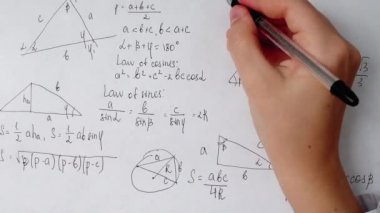 c β a
α b γ
p = a+b+c / 2
a < b+c, b < a+c
α + β + γ = 180°
Law of cosines:
a² = b² + c² - 2bc cos α
Law of sines:
a / sin α = b / sin β = c / sin γ = 2R
hₐ b γ
a
S = 1/2 ahₐ, S = 1/2 ab sin γ
S = √p(p-a)(p-b)(p-c)
a b R c
S = abc / 4R
a β c α
b
√3 / 3
cos β